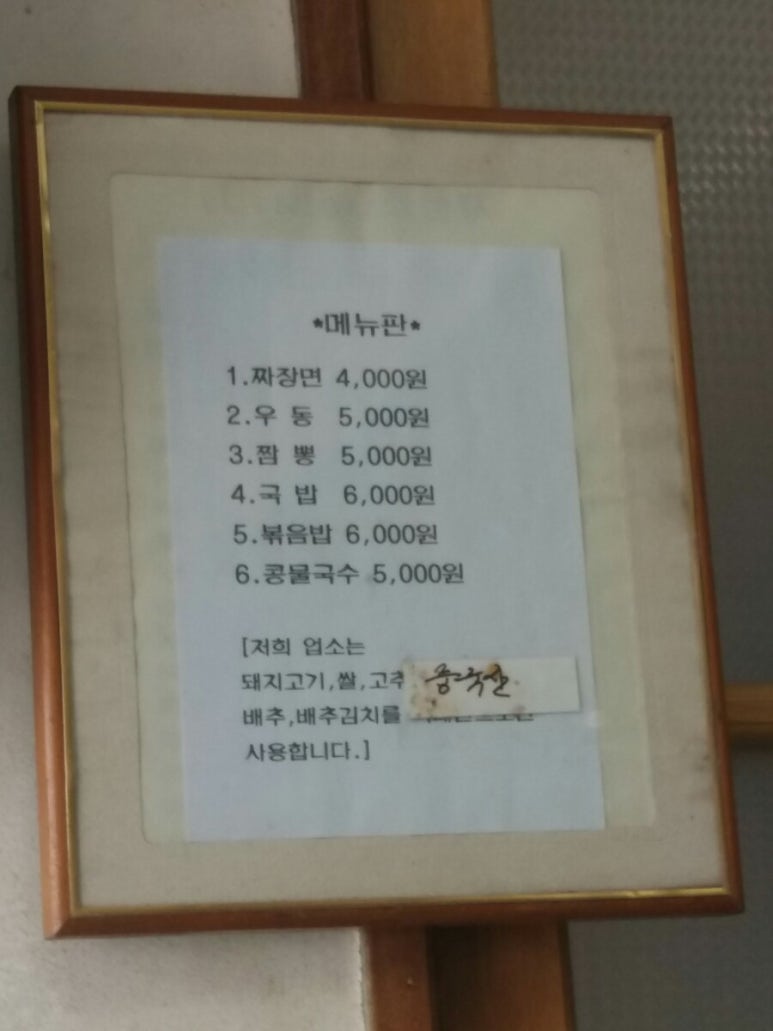 *메뉴판*
1.짜장면 4,000원
2.우 동 5,000원
3.짬 뽕 5,000원
4.국 밥 6,000원
5.볶음밥 6,000원
6.콩물국수 5,000원
[저희 업소는
돼지고기,쌀,고추 중국산
배추,배추김치를
사용합니다.]